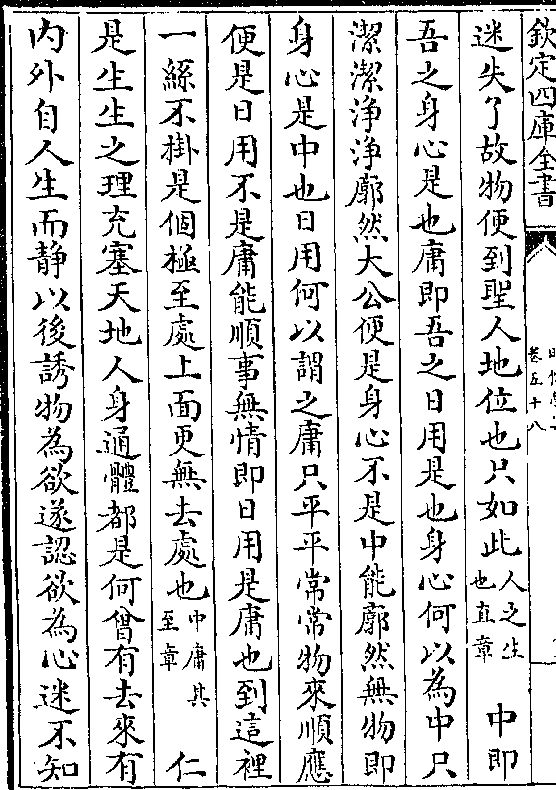 欽定四庫全書
卷五十八
迷失了故物便到聖人地位也只如此人之生也直章　中即
吾之身心是也庸即吾之日用是也身心何以為中只
潔潔淨淨廓然大公便是身心不是中能廓然無物即
身心是中也日用何以謂之庸只平平常常物來順應
便是日用不是庸能順事無情即日用是庸也到這裡
一絲不掛是個極至處上面更無去處也中庸其至章　仁
是生生之理充塞天地人身通體都是何曾有去來有
内外自人生而靜以後誘物為欲遂認欲為心迷不知